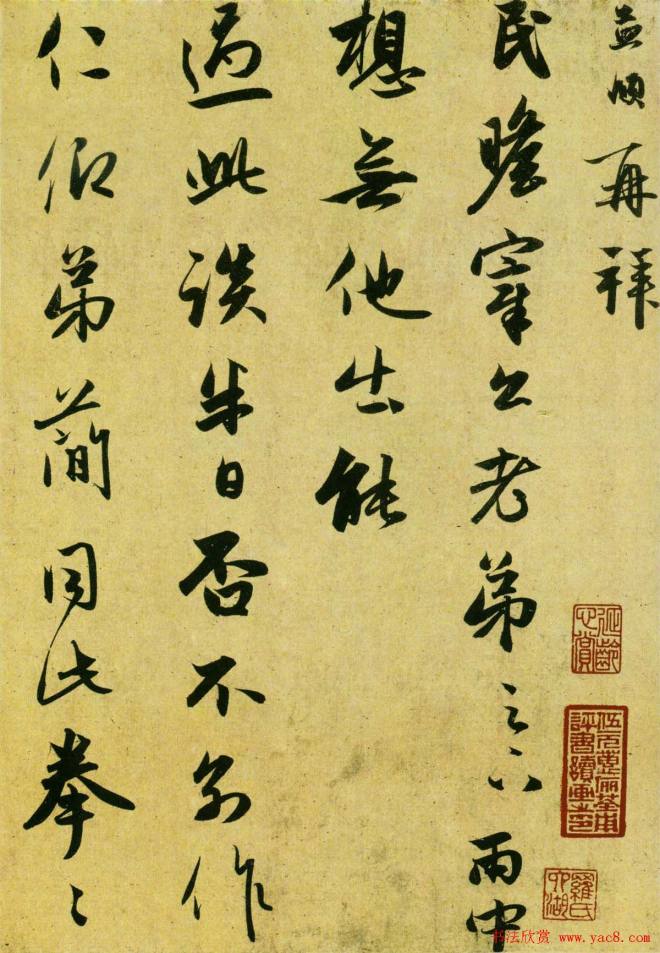 孟頫再拜
民瞻宰公老弟足下雨中
想無他出能
過此談半日否不別作
仁仰弟簡同此拳〻
延齡心賞
伍元蕙儷荃甫
評書讀畫之印
羅氏六湖
书法欣赏 www.yac8.com